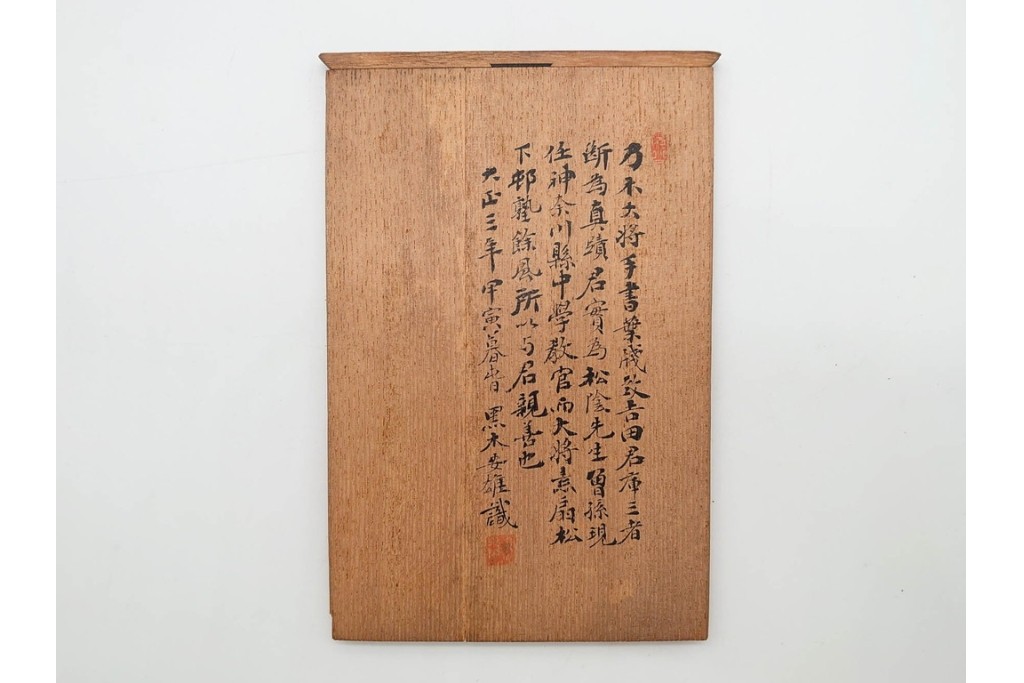 乃木大将手書葉牋致吉田君庫三者
断為真蹟君實為松陰先生曽孫現
任神奈川縣中學教官而大将素扇松
下邨塾餘風所以与君親善也
大正三年甲寅暮春 黒木安雄識